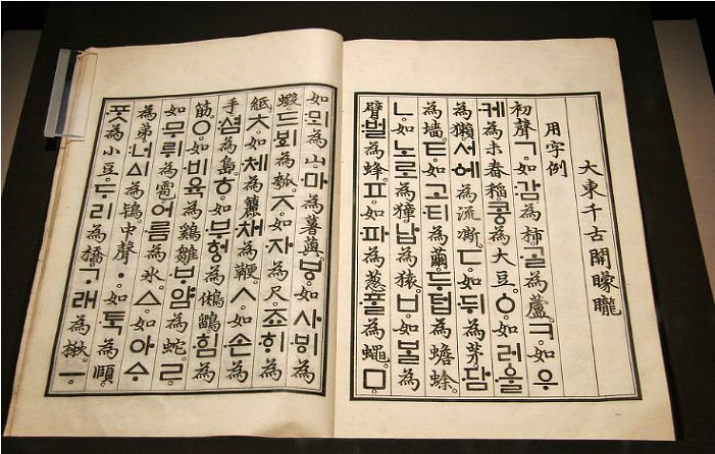 大東千古開矇矓
用字例
初聲ㄱ如감為柿ᄀᆞᆯ為蘆。ㅋ如우
케為未舂稻콩為大豆。ㆁ如러ᅌᅮᆯ
為獺서ᅌᅦ為流凘。ㄷ如뒤為茅담
為墻。ㅌ如고티為繭두텁為蟾蜍。
ㄴ如노로為獐납為猿。ㅂ如ᄇᆞᆯ為
臂벌為蜂。ㅍ如파為葱ᄑᆞᆯ為蠅。ㅁ
如뫼為山마為薯藇。ㅸ如사ᄫᅵ為
蝦드ᄫᅴ為瓠。ㅈ如자為尺죠ᄒᆡ為
紙。ㅊ如체為籭채為鞭。ㅅ如손為
手셤為島。ㅎ如부헝為鵂鶹힘為
筋。ㅇ如비육為鷄雛ᄇᆞ얌為蛇。ㄹ
如무뤼為雹어름為氷。ㅿ如아ᅀᆞ
為弟너ᅀᅵ為鴇。中聲ㆍ如ᄐᆞᆨ為頤
ᄑᆞᆺ為小豆ᄃᆞ리為橋ᄀᆞ래為楸。ㅡ